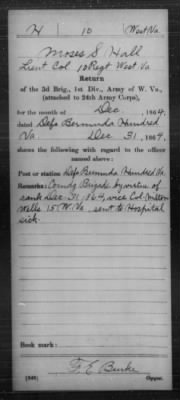 H 10 West Va.
Moses S Hall
Lieut Col 10 Regt West Va
Return
of the 3d Brig., 1st Div., Army of W. Va.,
(attached to 24th Army Corps),
for the month of Dec, 1864,
dated Defs Bermuda Hundred
Va. Dec 31, 1864,
shows the following with regard to the officer
named above:
Post or station Defs Bermuda Hundred Va.
Remarks: Comdg Brigade by virtue of
rank Dec 31, 1864, vice Col. Milton
Wells 15 W. Va., sent to Hospital
sick.
Book mark:
F. E. Burke
Copyist.